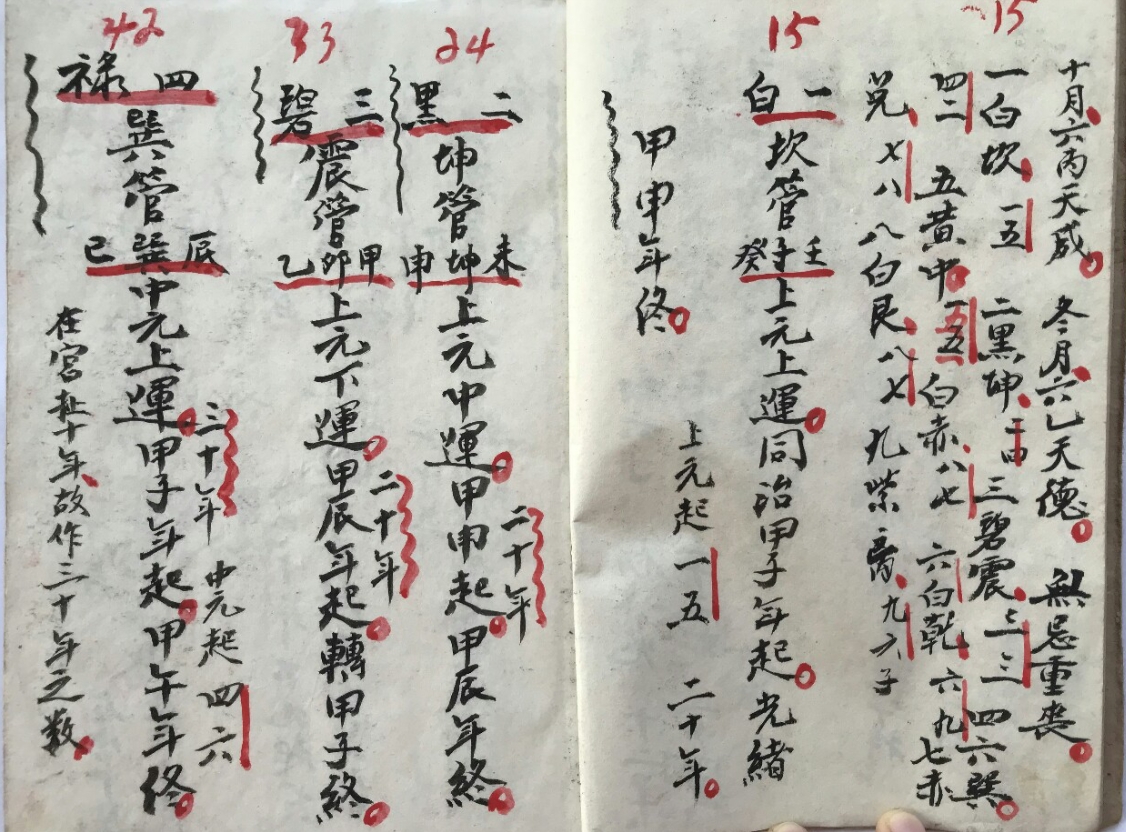 15
十月六丙天威 冬月六乙天德 無忌重喪
一白坎 一五 二黑坤 三碧震 三三 四六巽
四二 五黃中 一五 白赤 八七 六白乾 六九 七赤
兌 七八 八白艮 八七 九紫 离 九六子
15
一白
坎管壬子癸上元上運同治甲子年起光緒
上元起一五 二十年
甲申年終
24
二黑
坤管未坤申上元中運甲申起甲辰年終
二十年
33
三碧
震管甲卯乙上元下運甲辰年起轉甲子終
二十年
42
四祿
巽管辰巽巳中元上運甲子年起甲午年終
三十年 中元起四六
在宮赴十年故作三十年之数